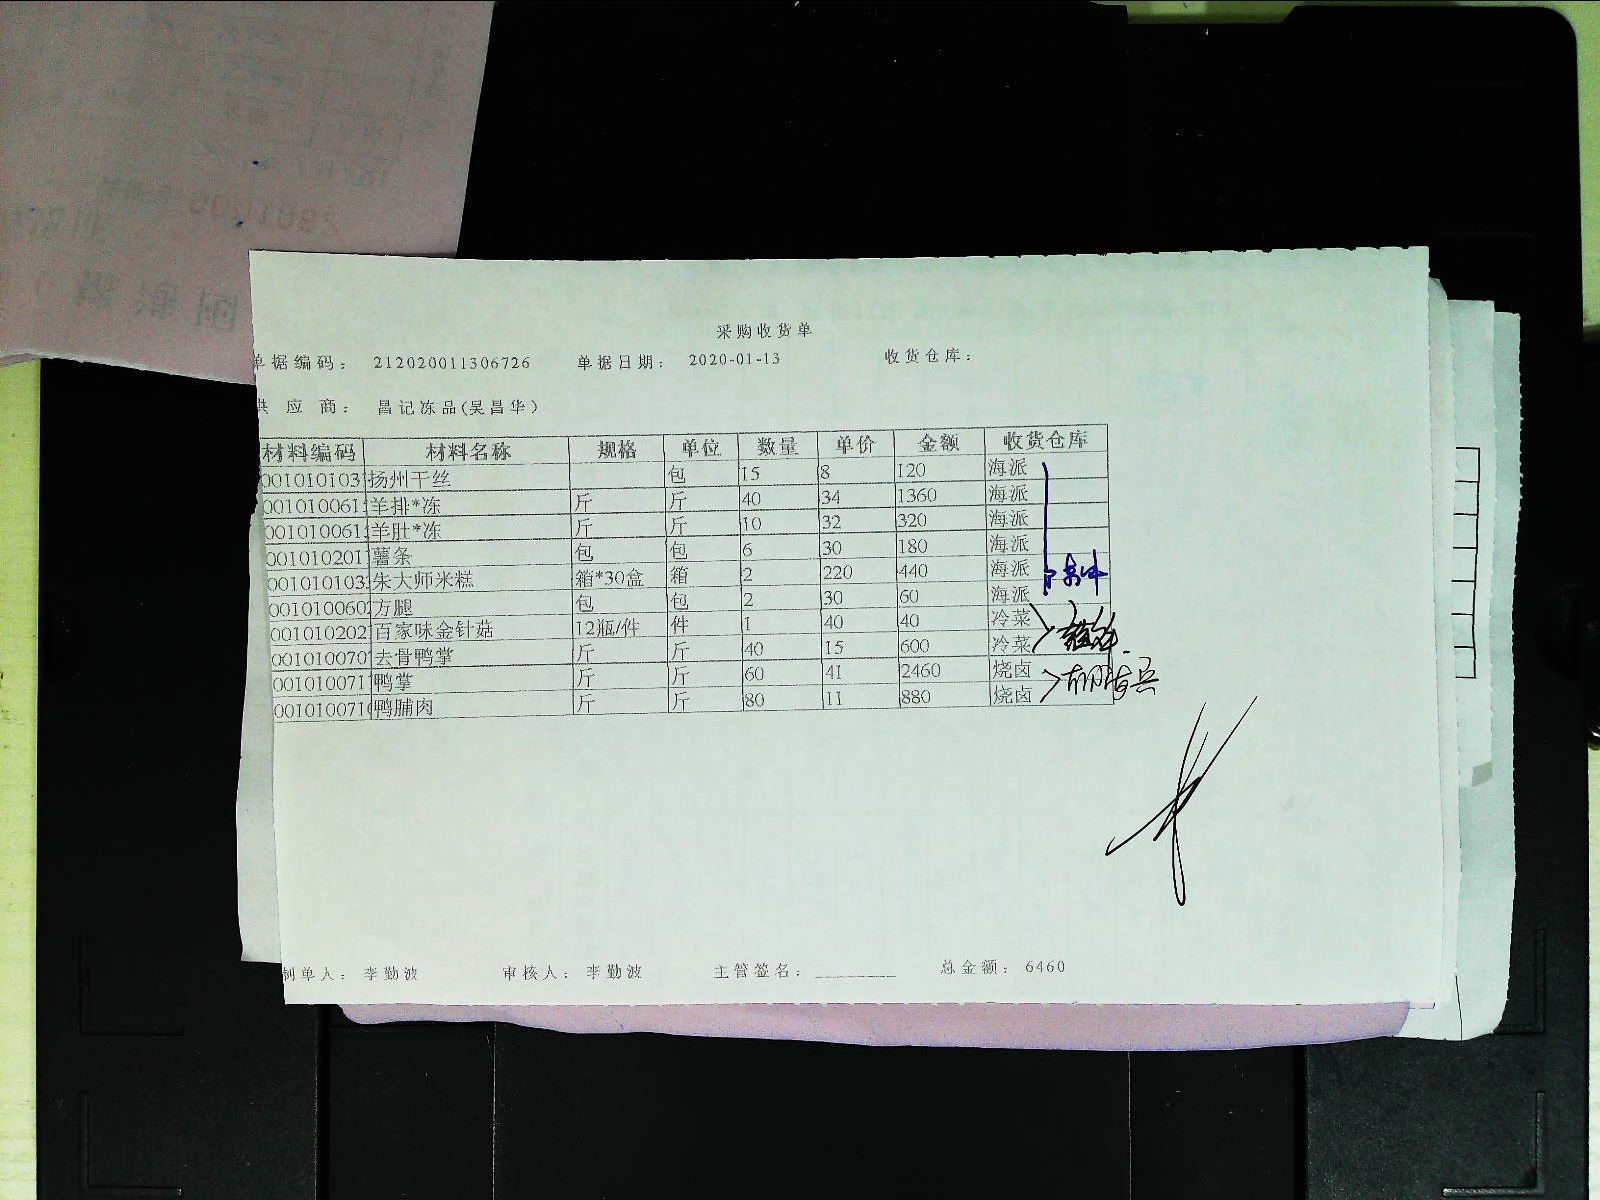 采购收货单
单据编码： 212020011306726 单据日期： 2020-01-13 收货仓库：
供 应 商： 昌记冻品(吴昌华)
材料编码 材料名称 规格 单位 数量 单价 金额 收货仓库
001010103 扬州干丝 包 15 8 120 海派
001010061 羊排*冻 斤 斤 40 34 1360 海派
001010061 羊肚*冻 斤 斤 10 32 320 海派
001010201 薯条 包 包 6 30 180 海派
001010103 朱大师米糕 箱*30盒 箱 2 220 440 海派
001010060 方腿 包 包 2 30 60 海派
001010202 百家味金针菇 12瓶/件 件 1 40 40 冷菜
001010070 去骨鸭掌 斤 斤 40 15 600 冷菜
001010071 鸭掌 斤 斤 60 41 2460 烧卤
001010071 鸭脯肉 斤 斤 80 11 880 烧卤
制单人： 李勤波 审核人： 李勤波 主管签名： 总金额： 6460